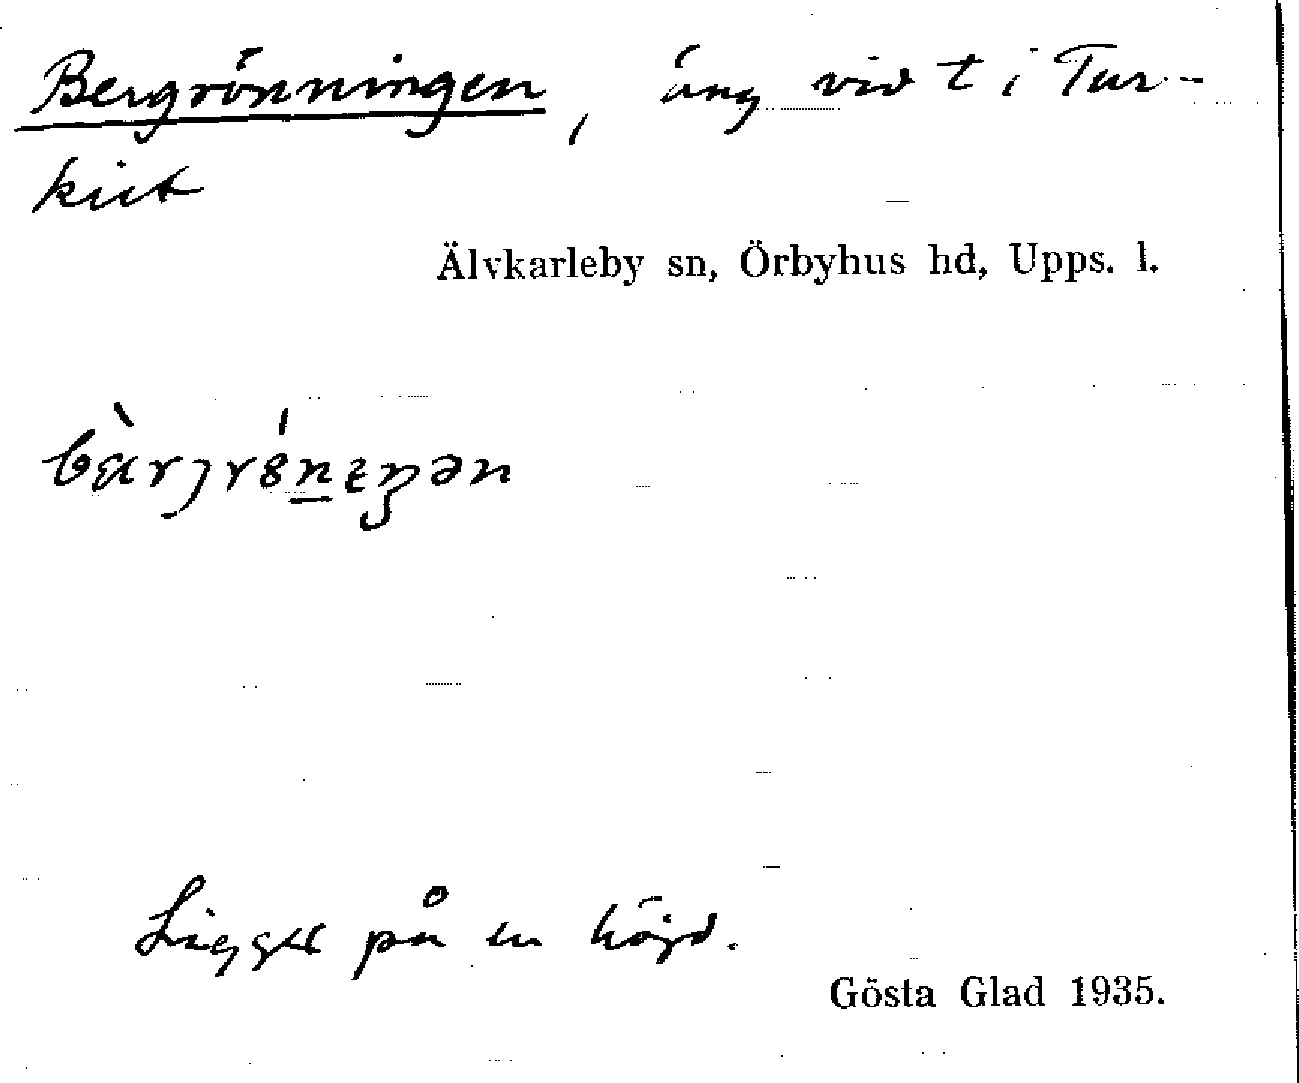 Bergrönningen, äng vid t i Tur-
kiet
Älvkarleby sn, Örbyhus hd, Upps. l.
Ligger på en höjd.
Gösta Glad 1935.